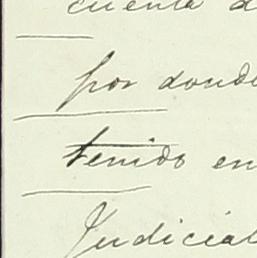 cuenta d
por donde
tenido en
Judicial